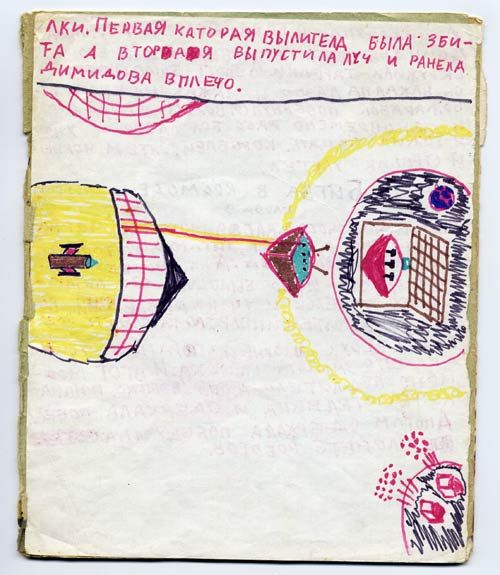 ЛКИ. ПЕРВАЯ КАТОРАЯ ВЫЛИТЕЛА БЫЛА ЗБИ-
ТА А ВТОРАЯ ВЫПУСТИЛА ЛУЧ И РАНЕЛА
ДИМИДОВА В ПЛЕЧО.